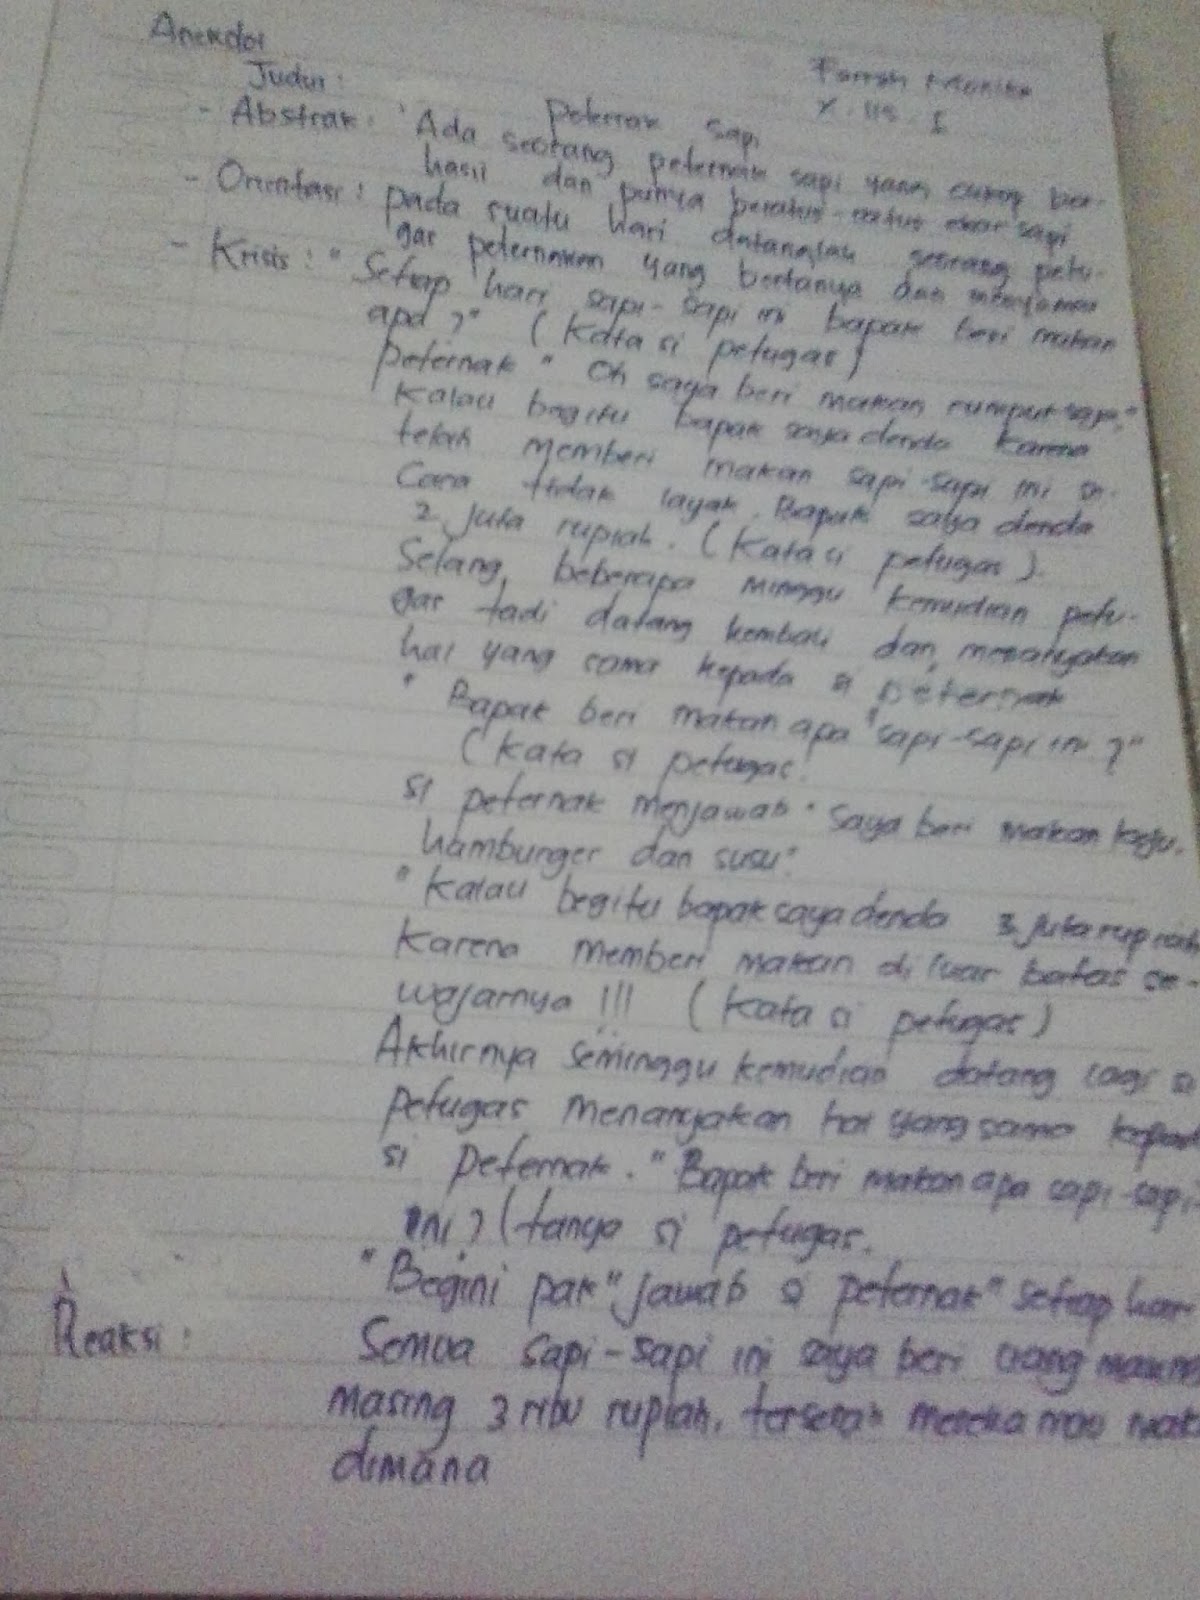 Anekdot
Judul :
Farrah Monika
X. IIS. 1
Peternak sapi
- Abstrak : "Ada seorang peternak sapi yang cukup ber-
hasil dan punya beratus-ratus ekor sapi
- Orientasi : pada suatu hari datanglah seorang petu-
gas peternakan yang bertanya dan menyamar
- Krisis : " Setiap hari sapi-sapi ini bapak beri makan
apa ?" (Kata si petugas)
Peternak " Oh saya beri makan rumput saja,"
Kalau begitu bapak saya denda karena
telah memberi makan sapi-sapi ini se-
cara tidak layak. Bapak saya denda
2 juta rupiah. (Kata si petugas).
Selang, beberapa minggu kemudian petu-
gas tadi datang kembali dan menanyakan
hal yang sama kepada si peternak
" Bapak beri makan apa sapi-sapi ini ?"
(Kata si petugas.
si peternak menjawab " saya beri makan keju,
hamburger dan susu".
" Kalau begitu bapak saya denda 3 juta rupiah
karena memberi makan di luar batas se-
wajarnya !!! (Kata si petugas)
Akhirnya seminggu kemudian datang lagi si
petugas menanyakan hal yang sama kepad
si peternak. "Bapak beri makan apa sapi-sapi
ini ? (tanya si petugas.
"Begini pak" jawab si peternak" setiap har
Reaksi : Semua sapi-sapi ini saya beri uang masing
masing 3 ribu rupiah, terserah mereka mau mak
dimana